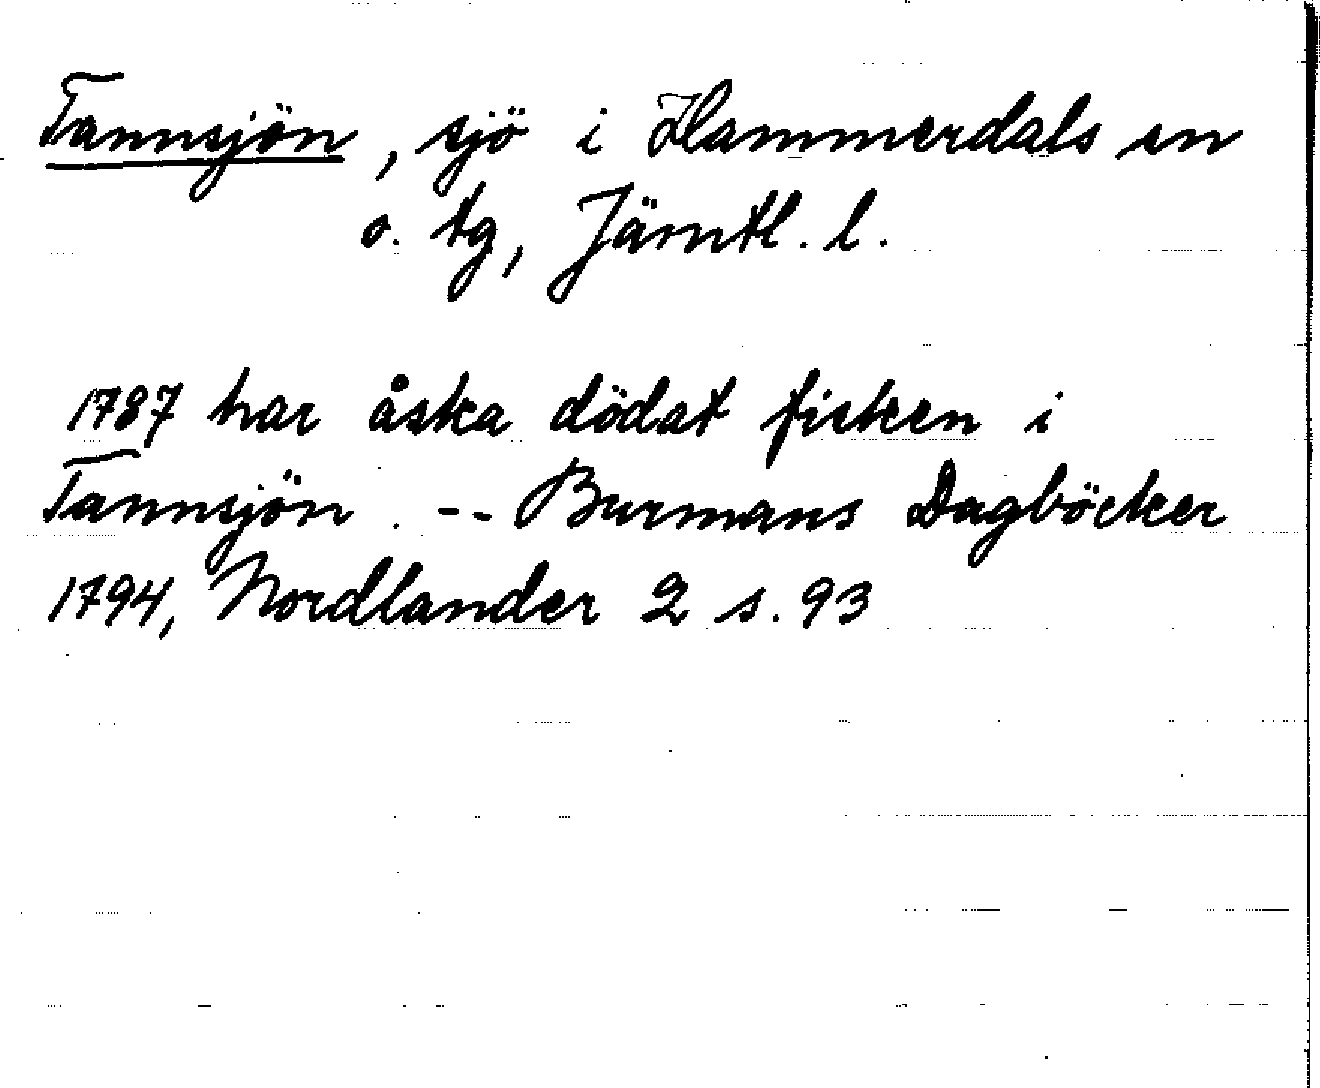 Tannsjön, sjö i Hammerdals sn
o. tg, Jämtl. l.
1787 har åska dödat fisken i
Tannsjön. -- Burmans Dagböcker
1794, Nordlander 2 s. 93